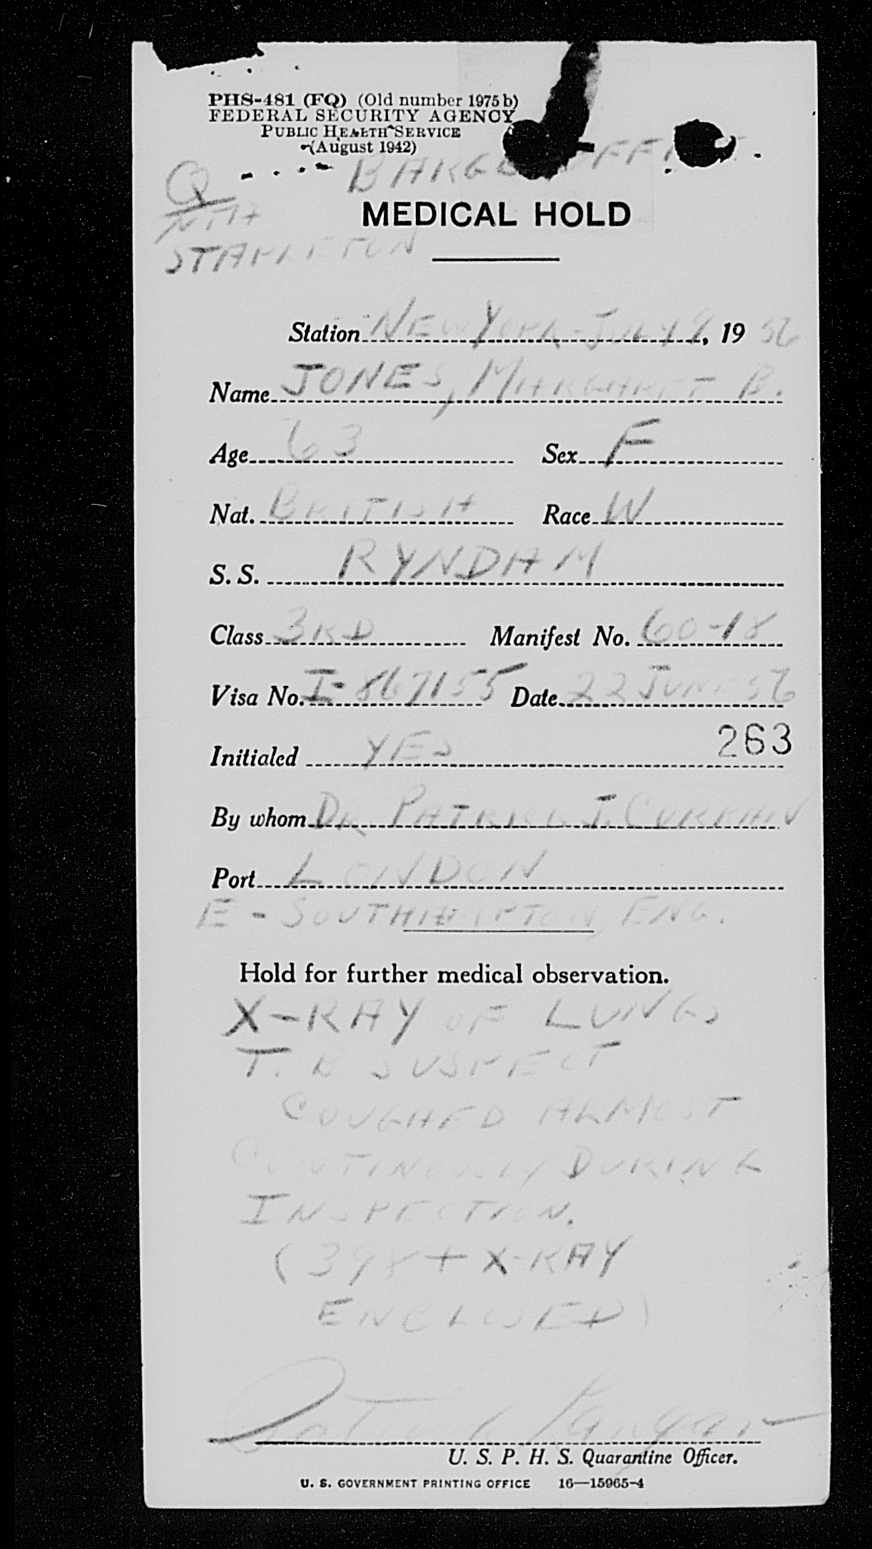 PHS-481 (FQ) (Old number 1975b)
FEDERAL SECURITY AGENCY
PUBLIC HEALTH SERVICE
(August 1942)
Q BARGE OFFICE
STAPLETON
MEDICAL HOLD
Station NEW YORK - JULY 9, 19 56
Name JONES, MARGARET B.
Age 63 Sex F
Nat. BRITISH Race W
S. S. RYNDAM
Class 3RD Manifest No. 60-18
Visa No. I-867155 Date 22 JUNE 56
Initialed YES 263
By whom DR. PATRICK J. CURRAN
Port LONDON
E - SOUTHHAMPTON, ENG.
Hold for further medical observation.
X-RAY OF LUNGS
T.B SUSPECT
COUGHED ALMOST
CONTINOUSLY DURING
INSPECTION.
(398 + X-RAY
ENCLOSED)
U. S. P. H. S. Quarantine Officer.
U. S. GOVERNMENT PRINTING OFFICE 16—15965-4